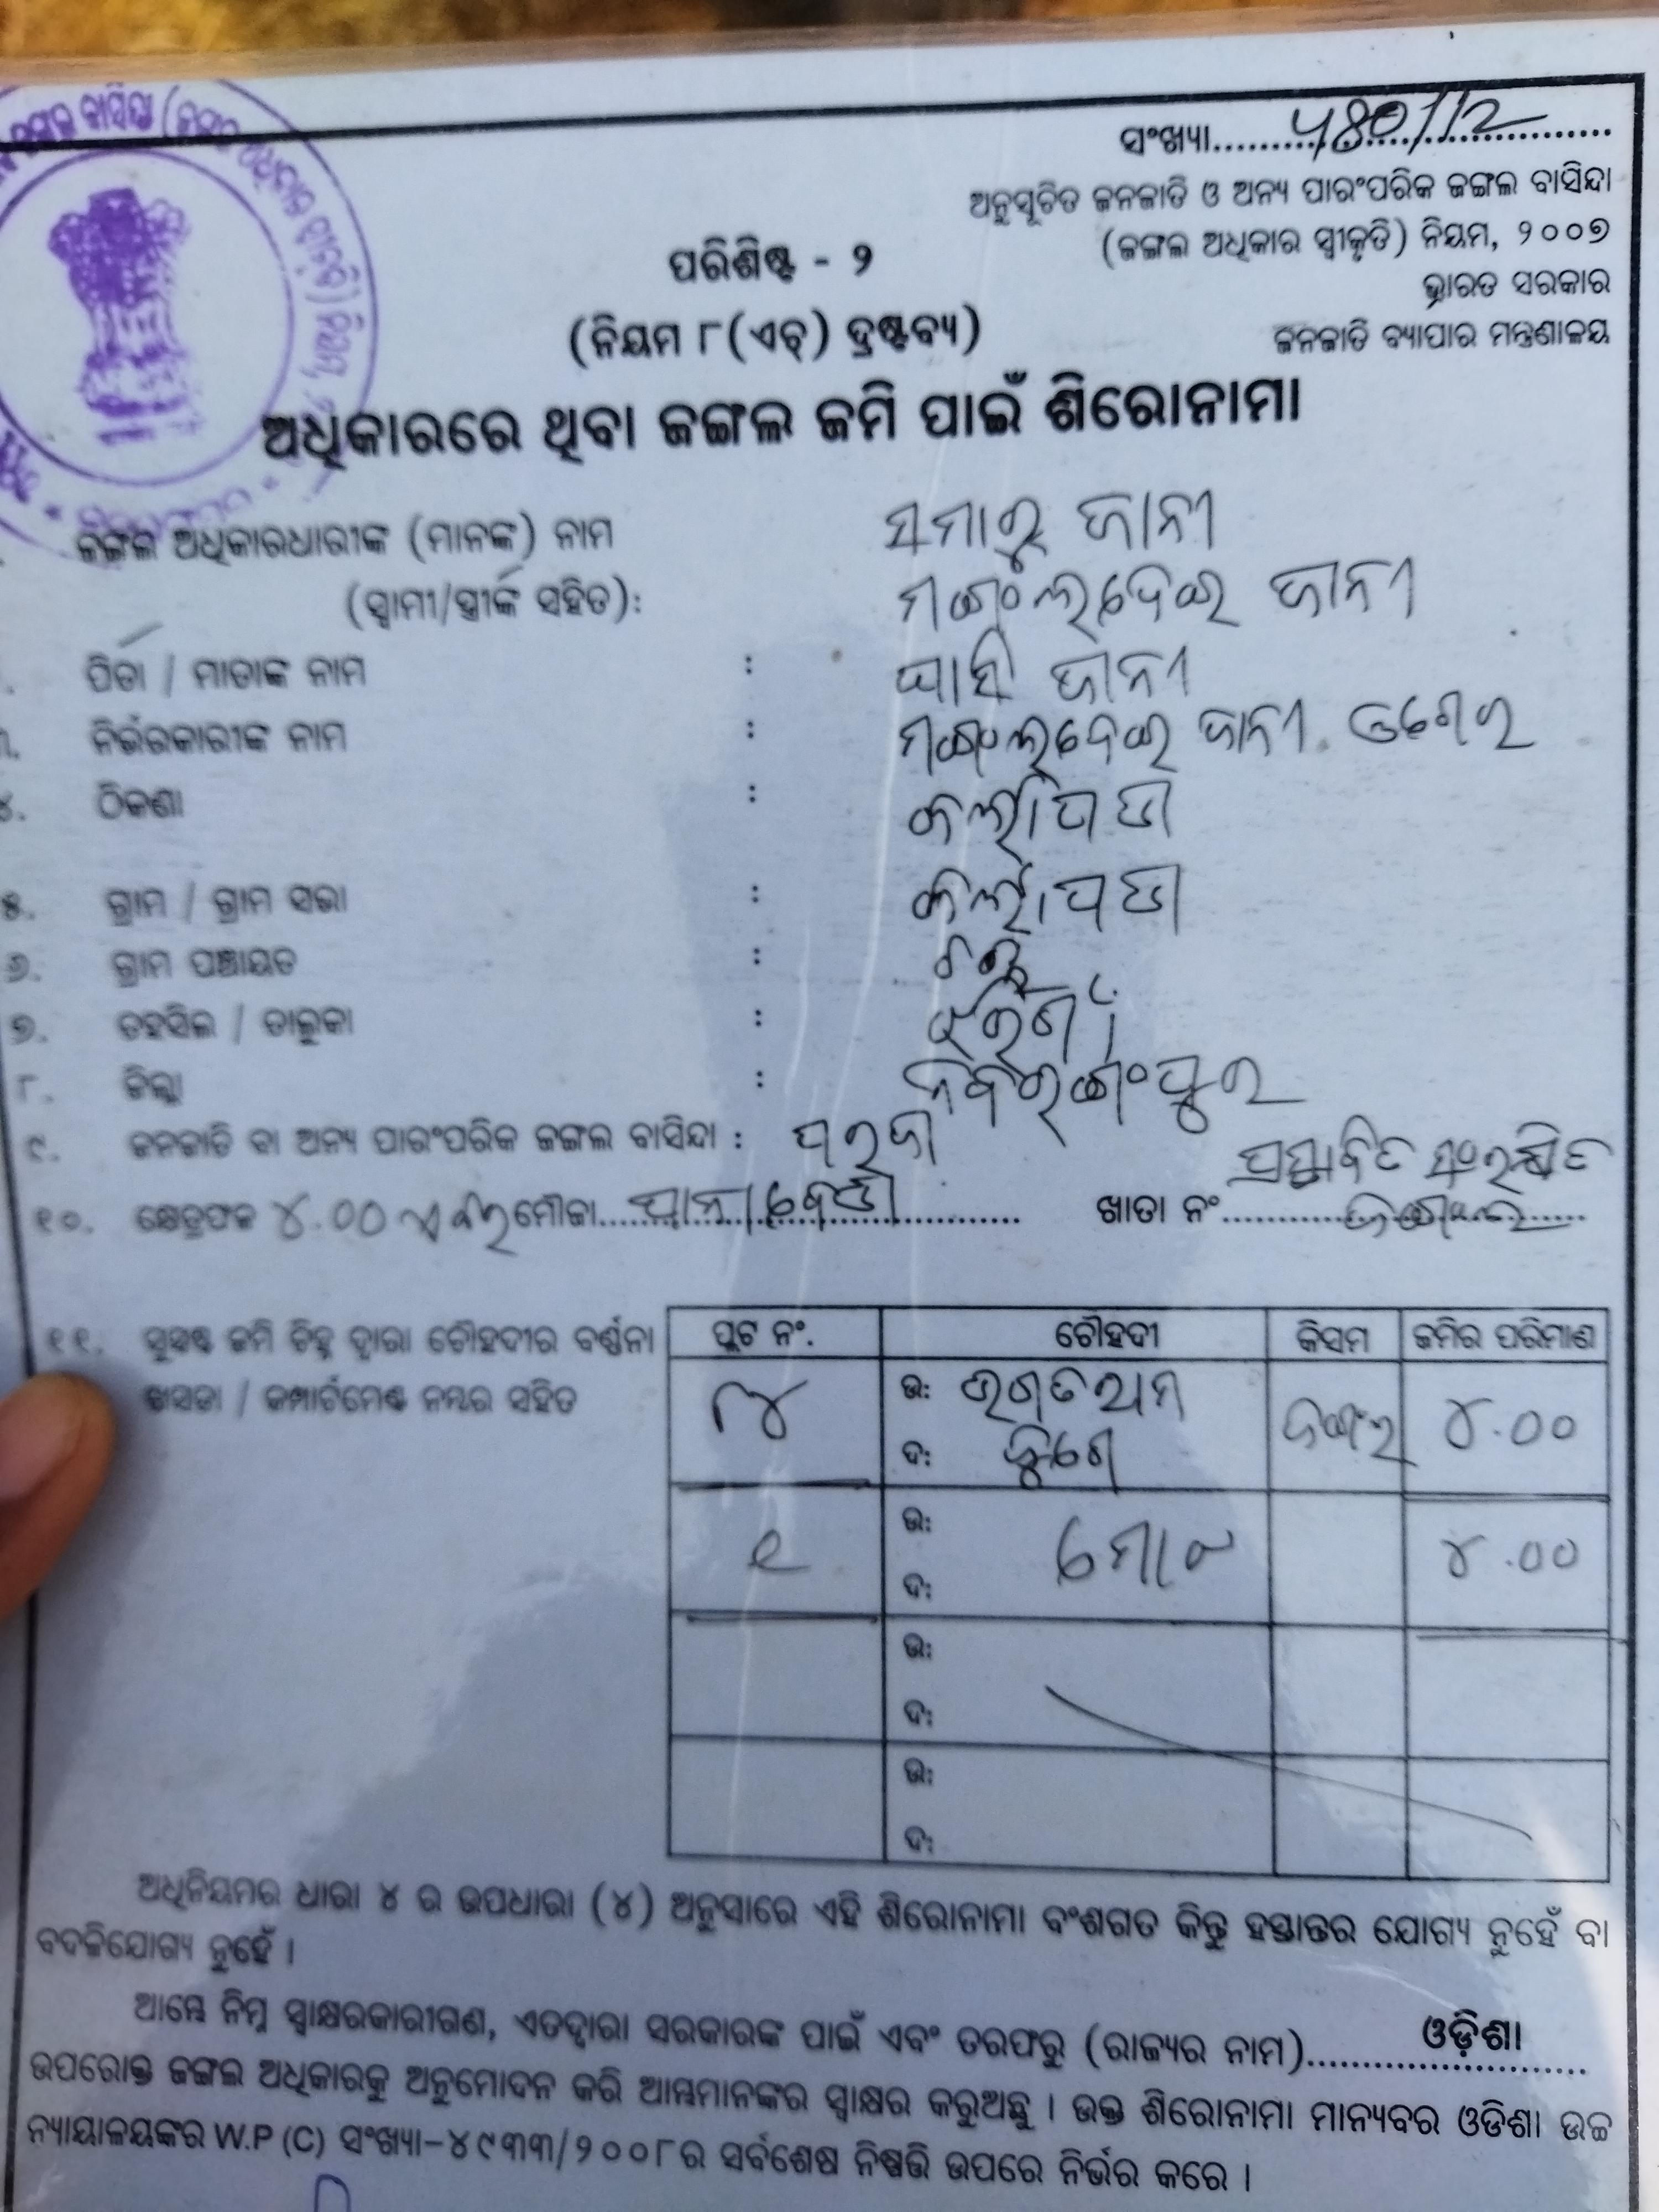 ସଂଖ୍ୟା..........480/12..........
ଅନୁସୂଚିତ ଜନଜାତି ଓ ଅନ୍ୟ ପାରଂପରିକ ଜଙ୍ଗଲ ବାସିନ୍ଦା
(ଜଙ୍ଗଲ ଅଧିକାର ସ୍ୱୀକୃତି) ନିୟମ, ୨୦୦୭
ଭାରତ ସରକାର
ଜନଜାତି ବ୍ୟାପାର ମନ୍ତ୍ରଣାଳୟ
ପରିଶିଷ୍ଟ - ୨
(ନିୟମ ୮(ଏଚ୍) ଦ୍ରଷ୍ଟବ୍ୟ)
ଅଧିକାରରେ ଥିବା ଜଙ୍ଗଲ ଜମି ପାଇଁ ଶିରୋନାମା
ଜଙ୍ଗଲ ଅଧିକାରଧାରୀଙ୍କ (ମାନଙ୍କ) ନାମ ସମାରୁ ଜାନୀ
(ସ୍ୱାମୀ/ସ୍ତ୍ରୀଙ୍କ ସହିତ): ଜାନୀ
ପିତା / ମାତାଙ୍କ ନାମ : ଘାସି ଜାନୀ
ନିର୍ଭରକାରୀଙ୍କ ନାମ : ଜାନୀ
୪. ଠିକଣା :
୫. ଗ୍ରାମ / ଗ୍ରାମ ସଭା :
୬. ଗ୍ରାମ ପଞ୍ଚାୟତ :
୭. ତହସିଲ / ତାଲୁକା : ଝରିଗାଁ
୮. ଜିଲ୍ଲା : ନବରଙ୍ଗପୁର
୯. ଜନଜାତି ବା ଅନ୍ୟ ପାରଂପରିକ ଜଙ୍ଗଲ ବାସିନ୍ଦା : ପରଜା
ପ୍ରସ୍ତାବିତ ସଂରକ୍ଷିତ
୧୦. କ୍ଷେତ୍ରଫଳ ୪.00 ଏକର ମୌଜା.................... ଖାତା ନଂ.......... ଜଙ୍ଗଲ
୧୧. ସୁସ୍ପଷ୍ଟ ଜମି ଚିହ୍ନ ଦ୍ୱାରା ଚୌହଦୀର ବର୍ଣ୍ଣନା
ଖସଡା / କମ୍ପାର୍ଟମେଣ୍ଟ ନମ୍ବର ସହିତ
ପ୍ଲଟ ନଂ. ଚୌହଦୀ କିସମ ଜମିର ପରିମାଣ
୮୪ ଉ: ଜଙ୍ଗଲ ୪.୦୦
ଦ:
୧ ଉ: ମୋଟ ୪.୦୦
ଦ:
ଉ:
ଦ:
ଉ:
ଦ:
ଅଧିନିୟମର ଧାରା ୪ ର ଉପଧାରା (୪) ଅନୁସାରେ ଏହି ଶିରୋନାମା ବଂଶଗତ କିନ୍ତୁ ହସ୍ତାନ୍ତର ଯୋଗ୍ୟ ନୁହେଁ ବା
ବଦଳିଯୋଗ୍ୟ ନୁହେଁ ।
ଆମ୍ଭେ ନିମ୍ନ ସ୍ୱାକ୍ଷରକାରୀଗଣ, ଏତଦ୍ୱାରା ସରକାରଙ୍କ ପାଇଁ ଏବଂ ତରଫରୁ (ରାଜ୍ୟର ନାମ)..........ଓଡ଼ିଶା..........
ଉପରୋକ୍ତ ଜଙ୍ଗଲ ଅଧିକାରକୁ ଅନୁମୋଦନ କରି ଆମ୍ଭମାନଙ୍କର ସ୍ୱାକ୍ଷର କରୁଅଛୁ । ଉକ୍ତ ଶିରୋନାମା ମାନ୍ୟବର ଓଡିଶା ଉଚ୍ଚ
ନ୍ୟାୟାଳୟଙ୍କର W.P (C) ସଂଖ୍ୟା-୪୯୩୩/୨୦୦୮ର ସର୍ବଶେଷ ନିଷ୍ପତ୍ତି ଉପରେ ନିର୍ଭର କରେ ।